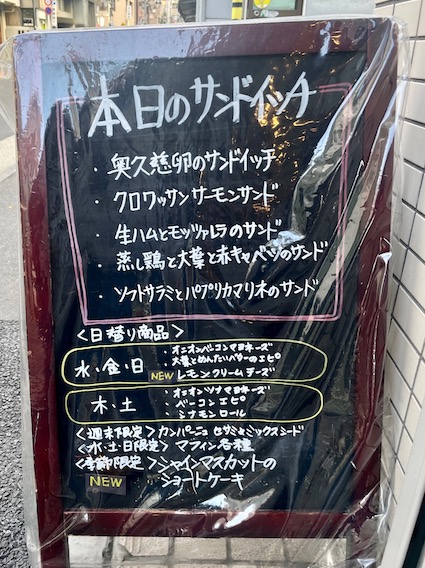 本日のサンドイッチ
・奥久慈卵のサンドイッチ
・クロワッサンサーモンサンド
・生ハムとモッツァレラのサンド
・蒸し鶏と大葉と赤キャベツのサンド
・ソフトサラミとパプリカマリネのサンド
<日替り商品>
水・金・日
・オニオンベーコンマヨネーズ
・大葉とめんたいバターのエピ
NEW レモンクリームチーズ
木・土
・オニオンツナマヨネーズ
・ベーコンエピ
・シナモンロール
<週末限定>カンパーニュ セサミ&ミックスシード
<水・土・日限定>マフィン各種
<季節限定>シャインマスカットの
NEW ショートケーキ